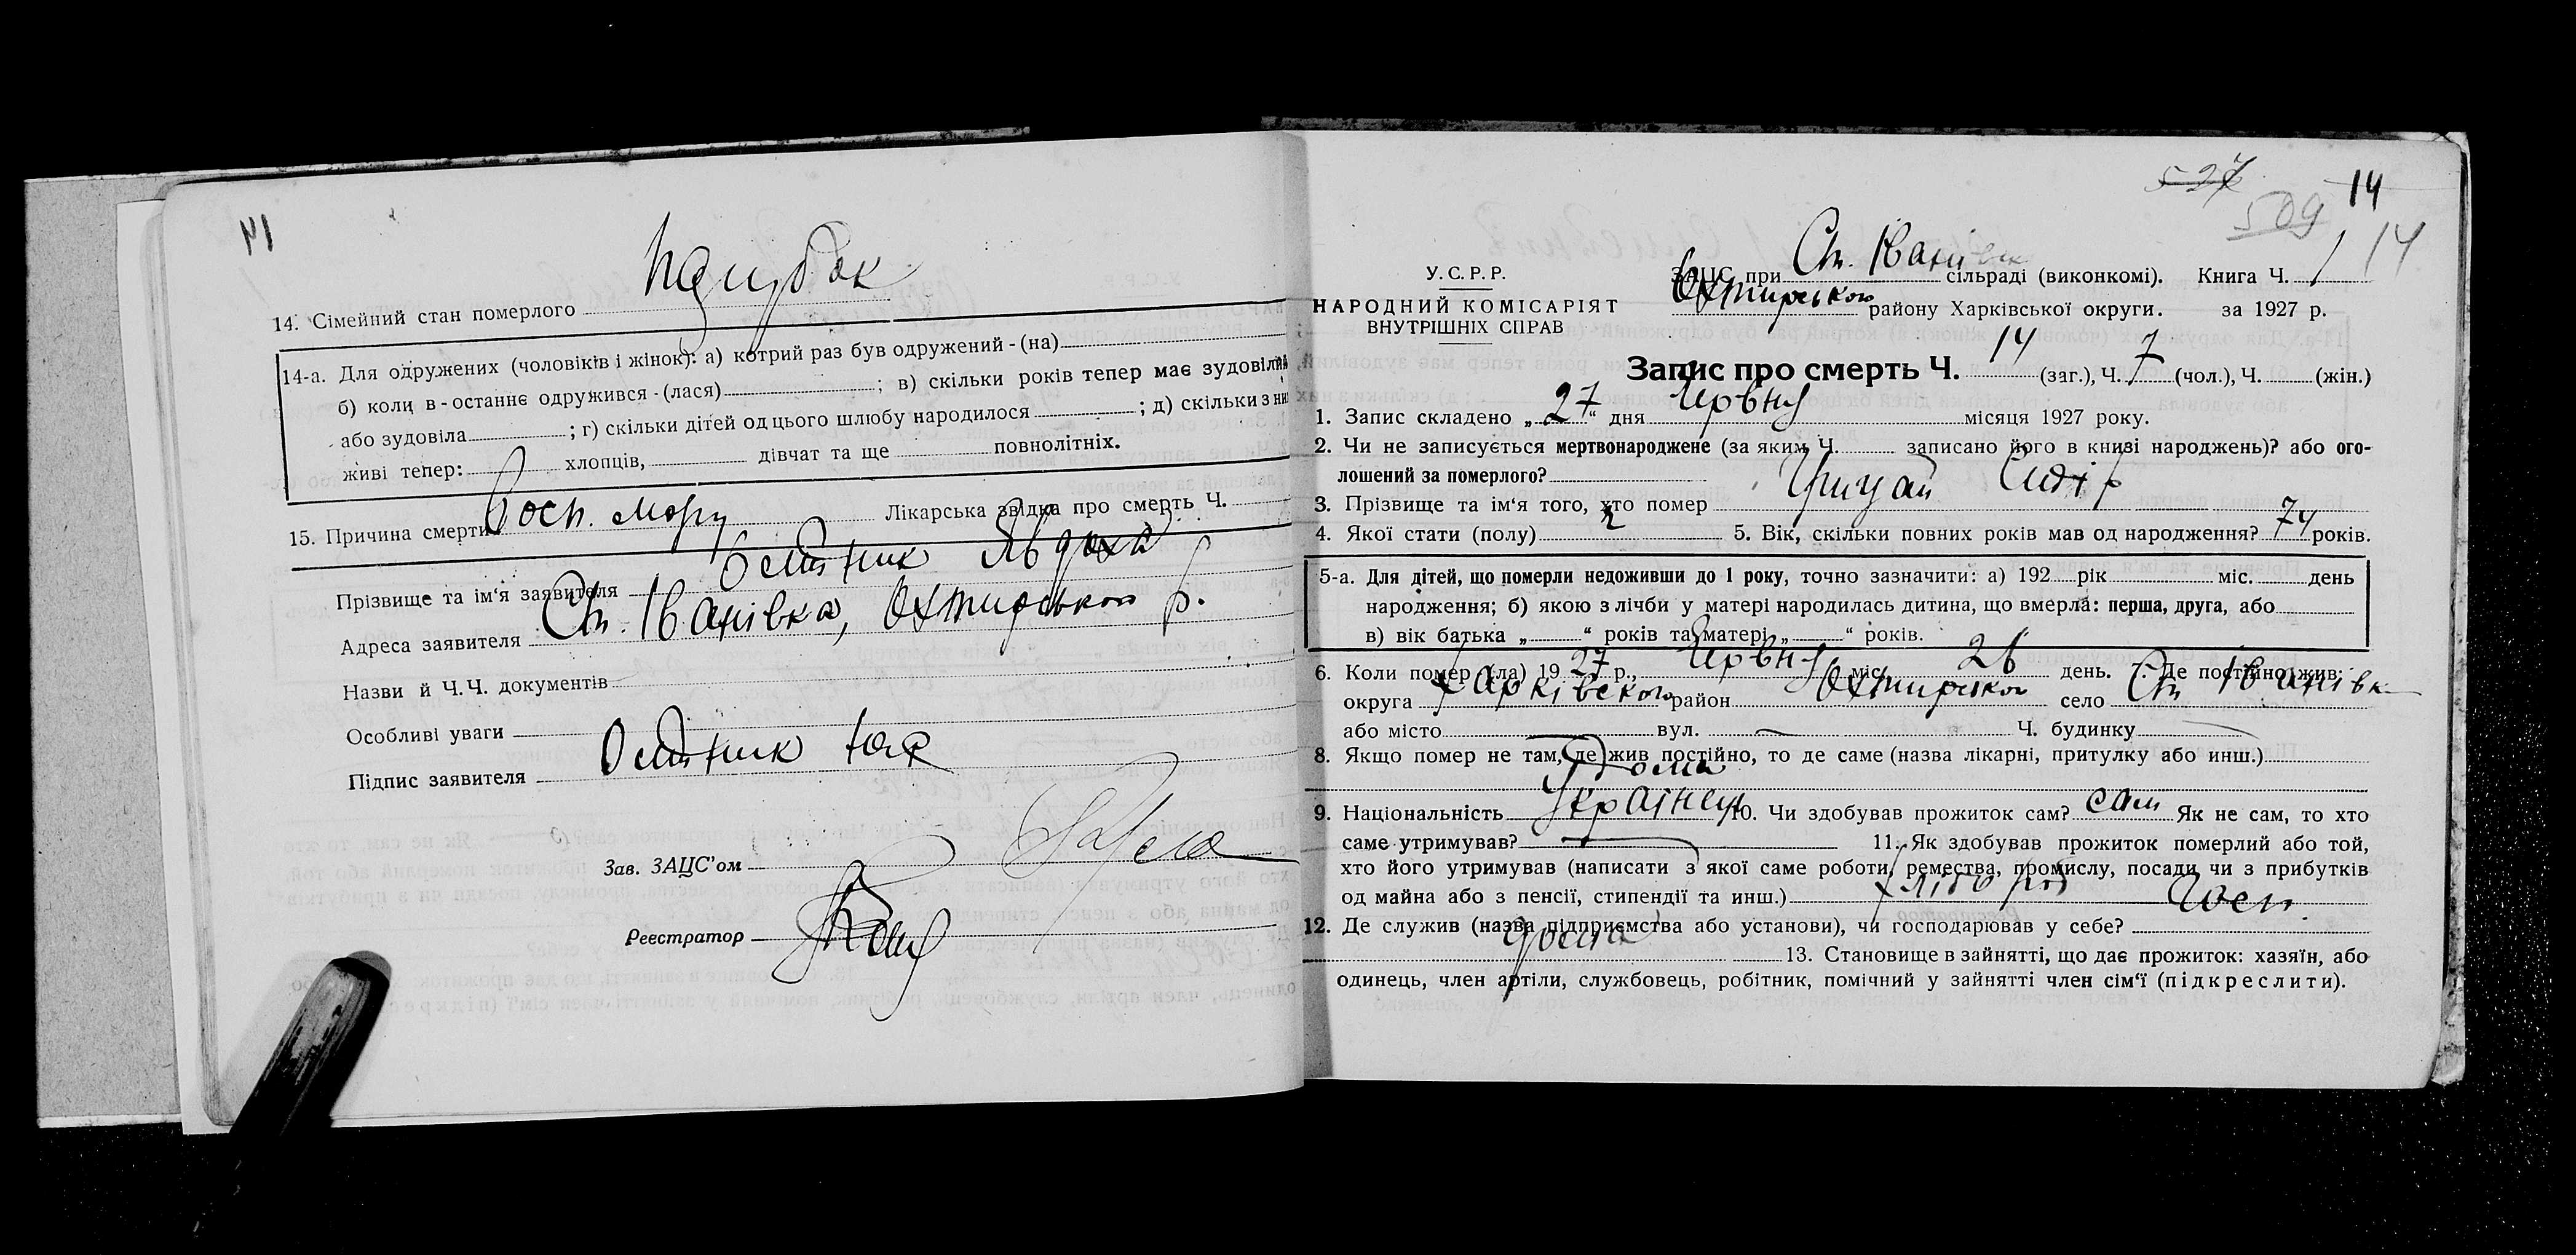 14
14. Сімейний стан померлого парубок
14-а. Для одружених (чоловіків і жінок): а) котрий раз був одружений - (на)
б) коли в - останнє одружився - (лася) ; в) скільки років тепер має зудовілий
або зудовіла ; г) скільки дітей од цього шлюбу народилося ; д) скільки з них
живі тепер: хлопців, дівчат та ще повнолітніх.
15. Причина смерти Лікарська звідка про смерть Ч.
Прізвище та ім'я заявителя Явдоха
Адреса заявителя Ст. Іванівка, Охтирського р.
Назви й Ч.Ч. документів
Особливі уваги
Підпис заявителя
Зав. ЗАЦС'ом
Реєстратор
527 14
509
14
У.С.Р.Р.
НАРОДНИЙ КОМІСАРІЯТ
ВНУТРІШНІХ СПРАВ
ЗАЦС при Ст. Іванівк сільраді (виконкомі). Книга Ч. 1
Охтирського району Харківської округи. за 1927 р.
Запис про смерть Ч. 14 (заг.), Ч. 7 (чол.), Ч. (жін.)
1. Запис складено „ 27 “ дня Червня місяця 1927 року.
2. Чи не записується мертвонароджене (за яким Ч. записано його в книзі народжень)? або ого-
лошений за померлого?
3. Прізвище та ім'я того, хто помер Грицай Сидір
4. Якої стати (полу) ч 5. Вік, скільки повних років мав од народження? 74 років.
5-а. Для дітей, що померли недоживши до 1 року, точно зазначити: а) 192 рік міс. день
народження; б) якою з лічби у матері народилась дитина, що вмерла: перша, друга, або
в) вік батька „ “ років та матері „ “ років.
6. Коли помер (ла) 19 27 р., Червня міс. 26 день. 7. Де постійно жив:
округа Харківського район Охтирського село Ст Іванівк
або місто вул. Ч. будинку
8. Якщо помер не там, де жив постійно, то де саме (назва лікарні, притулку або инш.)
Удома
9. Національність Українець 10. Чи здобував прожиток сам? сам Як не сам, то хто
саме утримував? 11. Як здобував прожиток померлий або той,
хто його утримував (написати з якої саме роботи, ремества, промислу, посади чи з прибутків
од майна або з пенсії, стипендії та инш.) хлібороб
12. Де служив (назва підприємства або установи), чи господарював у себе? Госп.
дома
13. Становище в зайнятті, що дає прожиток: хазяїн, або
одинець, член артіли, службовець, робітник, помічний у зайнятті член сім'ї (підкреслити).